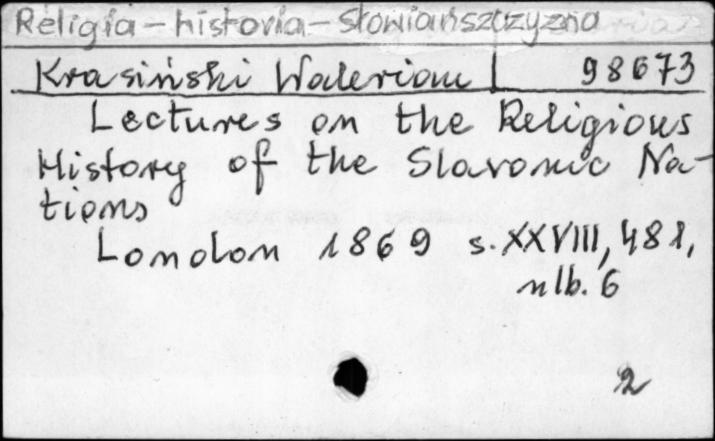 Religia - historia - Słowiańszczyzna
Krasiński Walerian 98673
Lectures on the Religious
History of the Slavonic Na-
tions
London 1869 s. XXVIII, 481,
nlb. 6
2